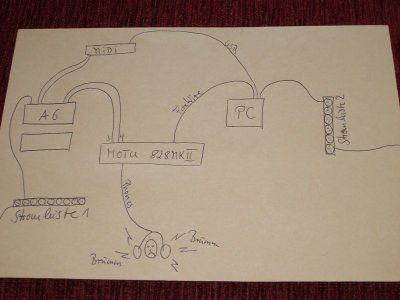 MiDi
USB
A6
Firewire
PC
Stromleiste 2
3 4
MOTU 828MKII
Stromleiste 1
Phones
Brumm
Brumm